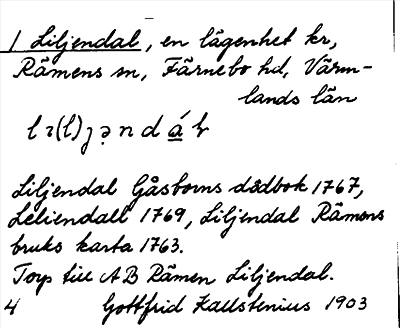 1 Liljendal, en lägenhet kr,
Rämens sn, Färnebo hd, Värm-
lands län
lı(l)ȷəndá̲ɫ
Liljendal Gåsborns dödbok 1767,
Leliendall 1769, Liljendal Rämens
bruks karta 1763.
Torp till AB Rämen Liljendal.
4 Gottfrid Kallstenius 1903